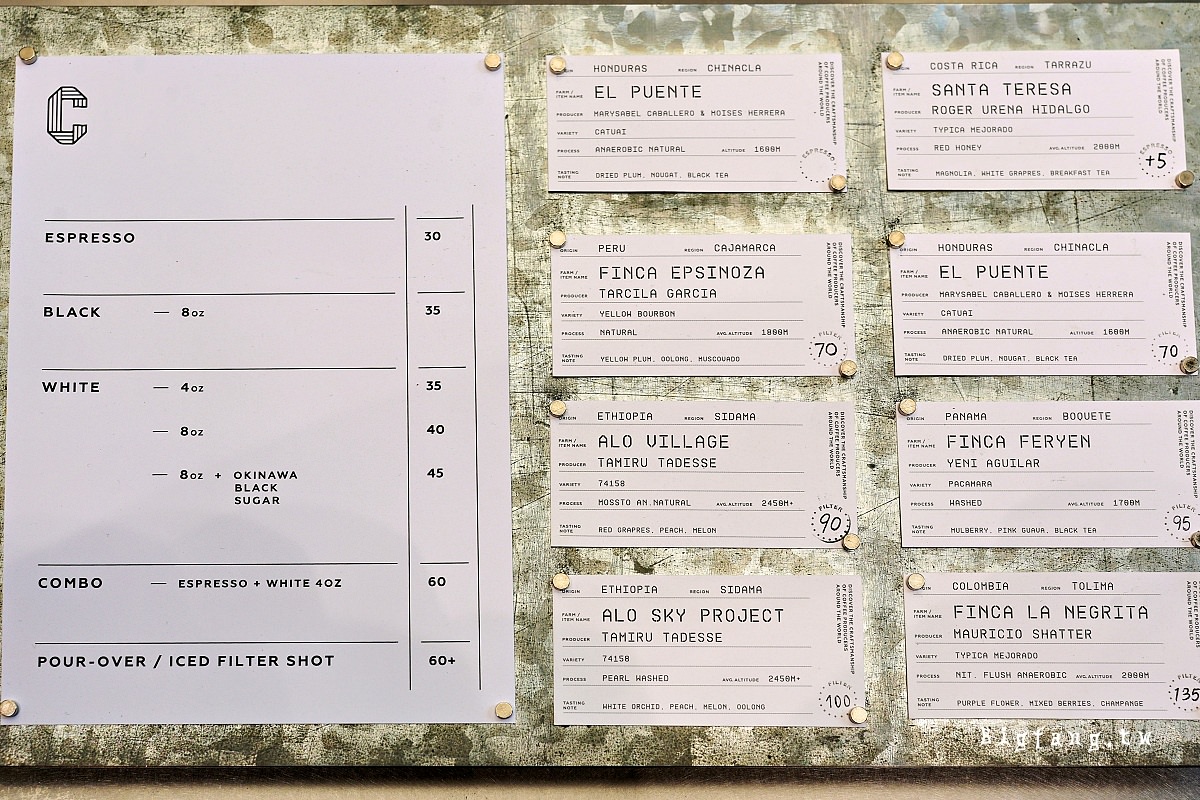 C
ESPRESSO 30
BLACK — 8oz 35
WHITE — 4oz 35
— 8oz 40
— 8oz + OKINAWA 45
BLACK
SUGAR
COMBO — ESPRESSO + WHITE 4OZ 60
POUR-OVER / ICED FILTER SHOT 60+
HONDURAS REGION CHINACLA
FARM / ITEM NAME EL PUENTE
PRODUCER MARYSABEL CABALLERO & MOISES HERRERA
VARIETY CATUAI
PROCESS ANAEROBIC NATURAL ALTITUDE 1600M
TASTING NOTE DRIED PLUM, NOUGAT, BLACK TEA
DISCOVER THE CRAFTSMANSHIP
OF COFFEE PRODUCERS
AROUND THE WORLD
ESPRESSO
COSTA RICA REGION TARRAZU
FARM / ITEM NAME SANTA TERESA
PRODUCER ROGER URENA HIDALGO
VARIETY TYPICA MEJORADO
PROCESS RED HONEY AVG.ALTITUDE 2000M
TASTING NOTE MAGNOLIA, WHITE GRAPRES, BREAKFAST TEA
DISCOVER THE CRAFTSMANSHIP
OF COFFEE PRODUCERS
AROUND THE WORLD
ESPRESSO
+5
PERU REGION CAJAMARCA
FARM / ITEM NAME FINCA EPSINOZA
PRODUCER TARCILA GARCIA
VARIETY YELLOW BOURBON
PROCESS NATURAL AVG.ALTITUDE 1800M
TASTING NOTE YELLOW PLUM, OOLONG, MUSCOVADO
DISCOVER THE CRAFTSMANSHIP
OF COFFEE PRODUCERS
AROUND THE WORLD
FILTER
70
HONDURAS REGION CHINACLA
FARM / ITEM NAME EL PUENTE
PRODUCER MARYSABEL CABALLERO & MOISES HERRERA
VARIETY CATUAI
PROCESS ANAEROBIC NATURAL ALTITUDE 1600M
TASTING NOTE DRIED PLUM, NOUGAT, BLACK TEA
DISCOVER THE CRAFTSMANSHIP
OF COFFEE PRODUCERS
AROUND THE WORLD
FILTER
70
ORIGIN ETHIOPIA REGION SIDAMA
FARM / ITEM NAME ALO VILLAGE
PRODUCER TAMIRU TADESSE
VARIETY 74158
PROCESS MOSSTO AN.NATURAL AVG.ALTITUDE 2450M+
TASTING NOTE RED GRAPRES, PEACH, MELON
DISCOVER THE CRAFTSMANSHIP
OF COFFEE PRODUCERS
AROUND THE WORLD
FILTER
90
ORIGIN PANAMA REGION BOQUETE
FARM / ITEM NAME FINCA FERYEN
PRODUCER YENI AGUILAR
VARIETY PACAMARA
PROCESS WASHED AVG.ALTITUDE 1700M
TASTING NOTE MULBERRY, PINK GUAVA, BLACK TEA
DISCOVER THE CRAFTSMANSHIP
OF COFFEE PRODUCERS
AROUND THE WORLD
FILTER
95
ETHIOPIA REGION SIDAMA
FARM / ITEM NAME ALO SKY PROJECT
PRODUCER TAMIRU TADESSE
VARIETY 74158
PROCESS PEARL WASHED AVG.ALTITUDE 2450M+
TASTING NOTE WHITE ORCHID, PEACH, MELON, OOLONG
DISCOVER THE CRAFTSMANSHIP
OF COFFEE PRODUCERS
AROUND THE WORLD
FILTER
100
COLOMBIA REGION TOLIMA
FARM / ITEM NAME FINCA LA NEGRITA
PRODUCER MAURICIO SHATTER
VARIETY TYPICA MEJORADO
PROCESS NIT. FLUSH ANAEROBIC AVG.ALTITUDE 2000M
TASTING NOTE PURPLE FLOWER, MIXED BERRIES, CHAMPANGE
DISCOVER THE CRAFTSMANSHIP
OF COFFEE PRODUCERS
FILTER
135
Bigfang.tw